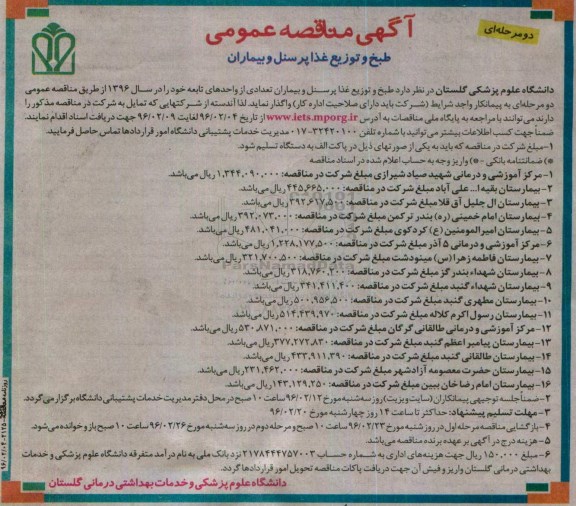 آگهی مناقصه عمومی
دو مرحله‌ای
طبخ و توزیع غذا پرسنل و بیماران
دانشگاه علوم پزشکی گلستان در نظر دارد طبخ و توزیع غذا پرسنل و بیماران تعدادی از واحدهای تابعه خود را در سال ۱۳۹۶ از طریق مناقصه عمومی
دو مرحله‌ای به پیمانکار واجد شرایط (شرکت باید دارای صلاحیت اداره کار) واگذار نماید. لذا آندسته از شرکتهایی که تمایل به شرکت در مناقصه مذکور را
دارند می‌توانند با مراجعه به پایگاه ملی مناقصات به آدرس www.iets.mporg.ir از تاریخ ۹۶/۰۲/۰۴ لغایت ۹۶/۰۲/۰۹ جهت دریافت اسناد اقدام نمایند.
ضمناً جهت کسب اطلاعات بیشتر می‌توانید با شماره تلفن ۳۲۴۲۰۱۰۰-۰۱۷ مدیریت خدمات پشتیبانی دانشگاه امور قراردادها تماس حاصل فرمایید.
۱-مبلغ شرکت در مناقصه که باید به یکی از صورتهای ذیل در پاکت الف به دستگاه تسلیم شود.
*) ضمانتنامه بانکی -*) واریز وجه به حساب اعلام شده در اسناد مناقصه
۱-مرکز آموزشی و درمانی شهید صیاد شیرازی مبلغ شرکت در مناقصه: ۱,۳۴۴,۰۹۰,۰۰۰ ریال می‌باشد.
۲-بیمارستان بقیه ا... علی آباد مبلغ شرکت در مناقصه: ۴۴۵,۶۶۵,۰۰۰ ریال می‌باشد.
۳-بیمارستان ال جلیل آق قلا مبلغ شرکت در مناقصه: ۳۹۲,۶۱۷,۵۰۰ ریال می‌باشد.
۴-بیمارستان امام خمینی (ره) بندر ترکمن مبلغ شرکت در مناقصه: ۳۹۲,۰۷۳,۰۰۰ ریال می‌باشد.
۵-بیمارستان امیرالمومنین (ع) کردکوی مبلغ شرکت در مناقصه: ۴۸۱,۰۴۱,۰۰۰ ریال می‌باشد.
۶-مرکز آموزشی و درمانی ۵ آذر مبلغ شرکت در مناقصه: ۱,۲۲۸,۱۷۷,۵۰۰ ریال می‌باشد.
۷-بیمارستان فاطمه زهرا (س) مینودشت مبلغ شرکت در مناقصه: ۳۲۱,۷۰۰,۵۰۰ ریال می‌باشد.
۸-بیمارستان شهداء بندر گز مبلغ شرکت در مناقصه: ۳۱۸,۷۶۰,۲۰۰ ریال می‌باشد.
۹-بیمارستان شهداء گنبد مبلغ شرکت در مناقصه: ۳۴۱,۴۱۱,۴۰۰ ریال می‌باشد.
۱۰-بیمارستان مطهری گنبد مبلغ شرکت در مناقصه: ۵۰۰,۹۵۶,۵۰۰ ریال می‌باشد.
۱۱-بیمارستان رسول اکرم کلاله مبلغ شرکت در مناقصه: ۵۱۴,۴۳۹,۹۷۰ ریال می‌باشد.
۱۲-مرکز آموزشی و درمانی طالقانی گرگان مبلغ شرکت در مناقصه: ۵۳۰,۸۷۱,۰۰۰ ریال می‌باشد.
۱۳-بیمارستان پیامبر اعظم گنبد مبلغ شرکت در مناقصه: ۳۷۷,۲۷۲,۸۳۰ ریال می‌باشد.
۱۴-بیمارستان طالقانی گنبد مبلغ شرکت در مناقصه: ۴۳۳,۹۱۱,۳۹۰ ریال می‌باشد.
۱۵-بیمارستان حضرت معصومه آزادشهر مبلغ شرکت در مناقصه: ۲۳۱,۴۶۲,۰۰۰ ریال می‌باشد.
۱۶-بیمارستان امام رضا خان ببین مبلغ شرکت در مناقصه: ۱۴۳,۱۲۹,۲۵۰ ریال می‌باشد.
۲-ضمناً جلسه توجیهی پیمانکاران (سایت ویزیت) روز سه‌شنبه مورخ ۹۶/۰۲/۱۲ ساعت ۱۰ صبح در محل دفتر مدیریت خدمات پشتیبانی دانشگاه برگزار می‌گردد.
۳-مهلت تسلیم پیشنهاد: حداکثر تا ساعت ۱۴ روز چهارشنبه مورخ ۹۶/۰۲/۲۰
۴-بازگشایی مناقصه مرحله اول در روز شنبه مورخ ۹۶/۰۲/۲۳ ساعت ۱۰ صبح و مرحله دوم در روز سه شنبه مورخ ۹۶/۰۲/۲۶ ساعت ۱۰ صبح باز و خوانده می‌شود.
۵-هزینه درج در آگهی بر عهده برنده مناقصه می‌باشد.
۶-مبلغ ۱۵۰,۰۰۰ ریال جهت هزینه‌های اداری به شماره حساب ۲۱۷۸۴۴۴۷۵۷۰۰۳ نزد بانک ملی به نام درآمد متفرقه دانشگاه علوم پزشکی و خدمات
بهداشتی درمانی گلستان واریز و فیش آن جهت دریافت پاکات مناقصه تحویل امور قراردادها گردد.
دانشگاه علوم پزشکی و خدمات بهداشتی درمانی گلستان